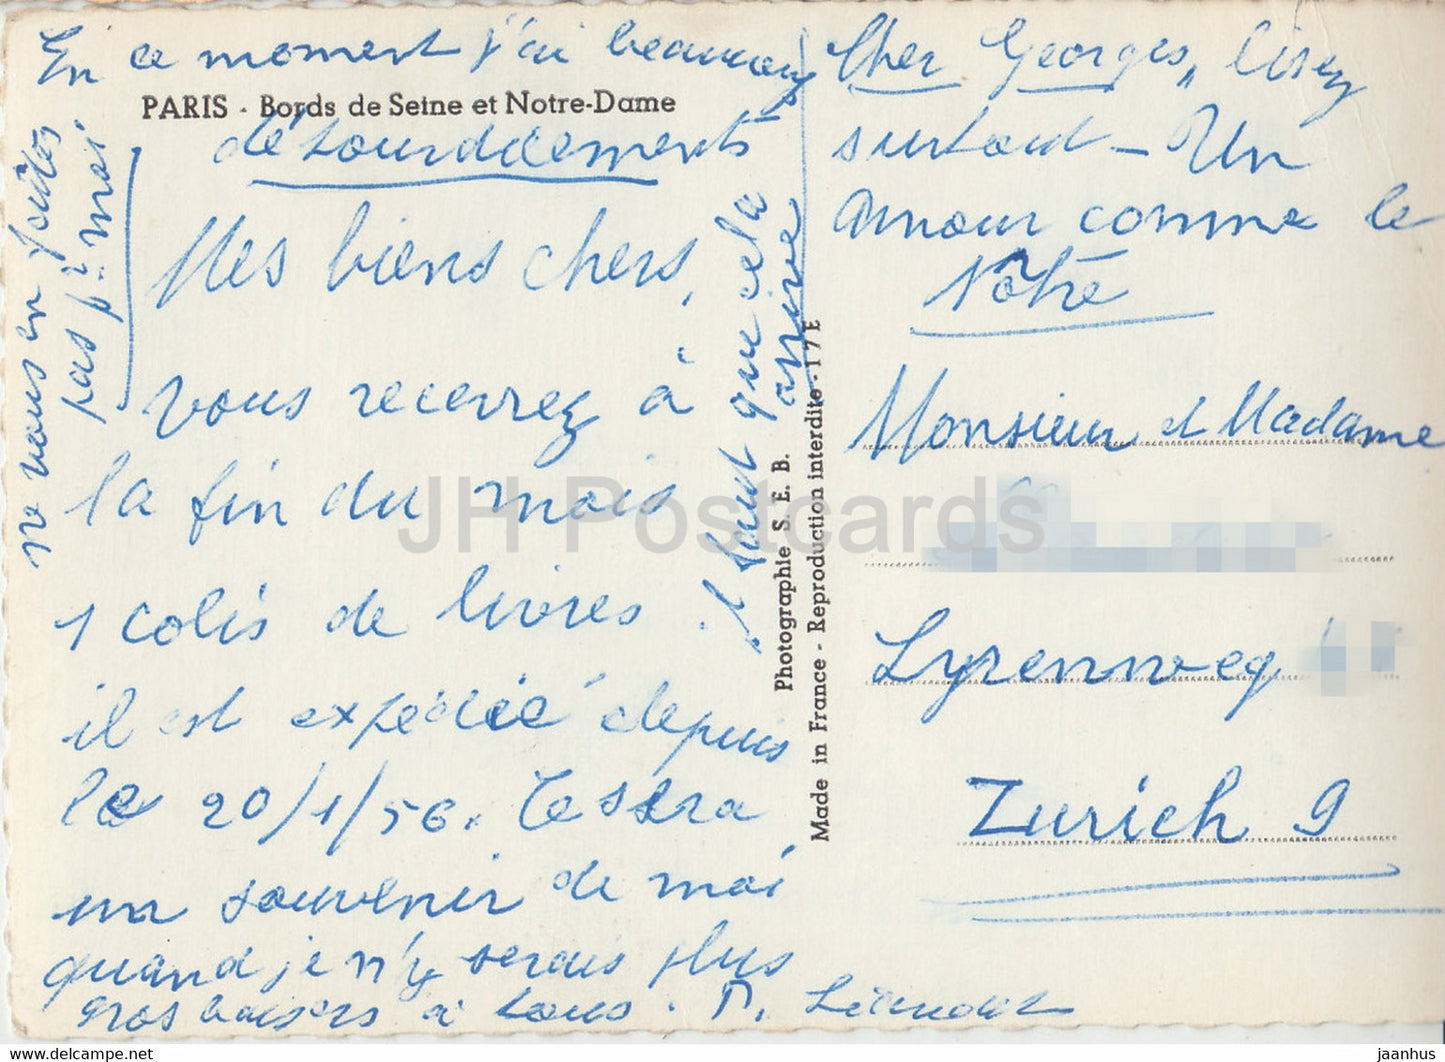 En ce moment j'ai beaucoup
PARIS - Bords de Seine et Notre-Dame
d'étourdicements
Mes biens chers,
vous recevrez à
la fin du mois
1 colis de livres.
il est expédiée depuis
le 20/1/56. Ce sera
un souvenir de moi
quand je n'y serais plus
gros baisers à tous.
ne vous en faites
pas pr moi
il faut que cela
arrive
Photographie S. E. B.
Made in France - Reproduction interdite - 17 E
Cher Georges, lisez
surtout - Un
Amour comme le
Nôtre
Monsieur et Madame
Lyrenweg
Zurich 9
JH Postcards
jaanhus — https://www.jaanhus.com